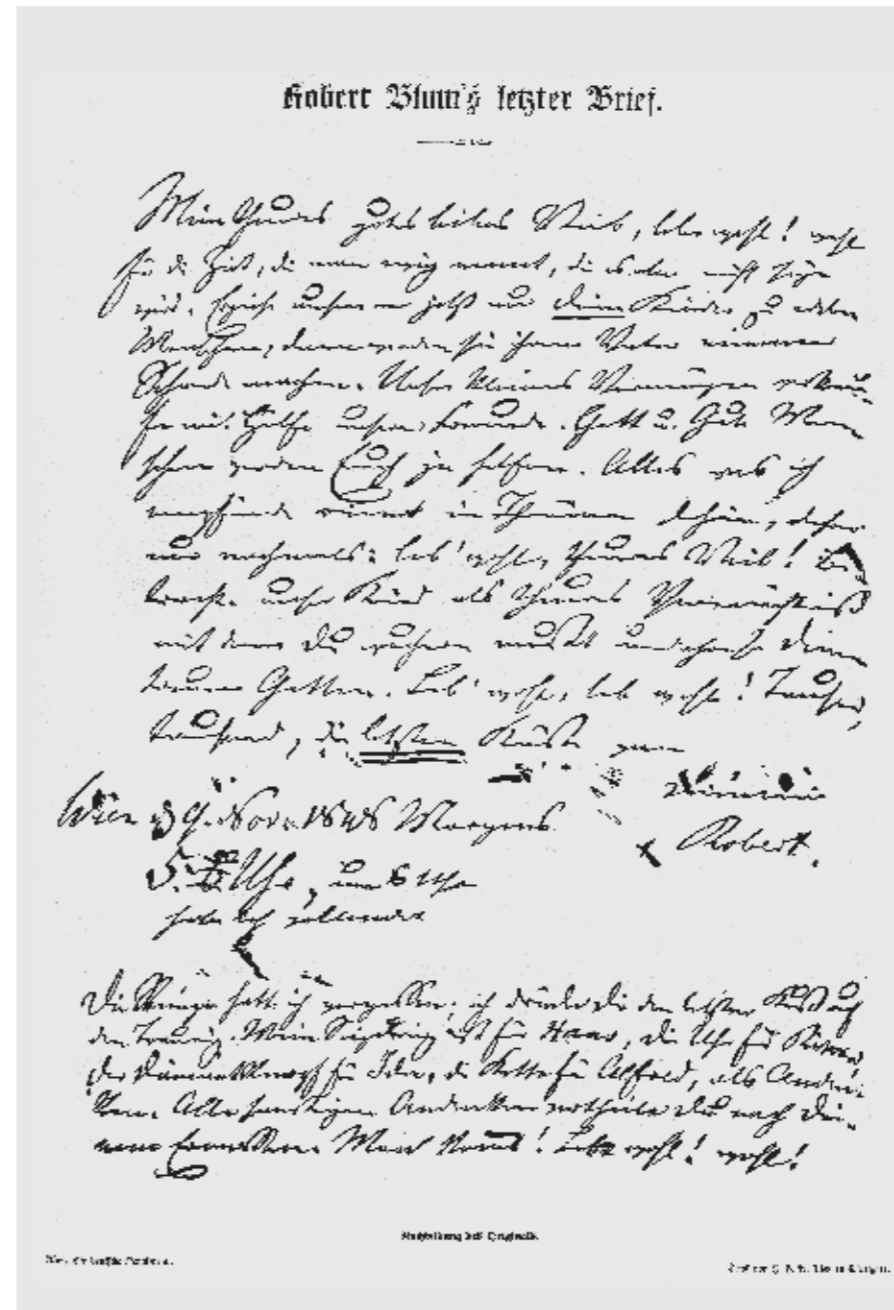 Robert Blum's letzter Brief.
Mein theures gutes liebes Weib, lebe wohl! wohl
für die Zeit, die man ewig nennt, die es aber nicht sein
wird. Erziehe unsere jetzt nur Deine Kinder zu edlen
Menschen, dann werden sie ihrem Vater nimmer
Schande machen. Unser kleines Vermögen verkau-
fe mit Hülfe unserer Freunde. Gott u. gute Men-
schen werden Euch ja helfen. Alles was ich
empfinde rinnt in Thränen dahin, daher
nur nochmals: leb' wohl, theures Weib! Be-
trachte unsere Kinder als theures Vermächtniß
mit dem Du wuchern mußt und ehre so Deinen
treuen Gatten. Leb' wohl, leb wohl! Tausend,
tausend, die letzten Küsse von
Deinem
Robert.
Wien d 9. Nov. 1848 Morgens
5 Uhr, um 6 Uhr
habe ich vollendet
Die Ringe hatte ich vergessen; ich drücke Dir den letzten Kuß auf
den Trauring. Mein Siegelring ist für Hans, die Uhr für Richard,
der Diamantknopf für Ida, die Kette für Alfred, als Anden-
ken. Alle sonstigen Andenken vertheile Du nach Dei-
nem Ermessen. Man kommt! Lebe wohl! wohl!
Nachbildung des Originals.